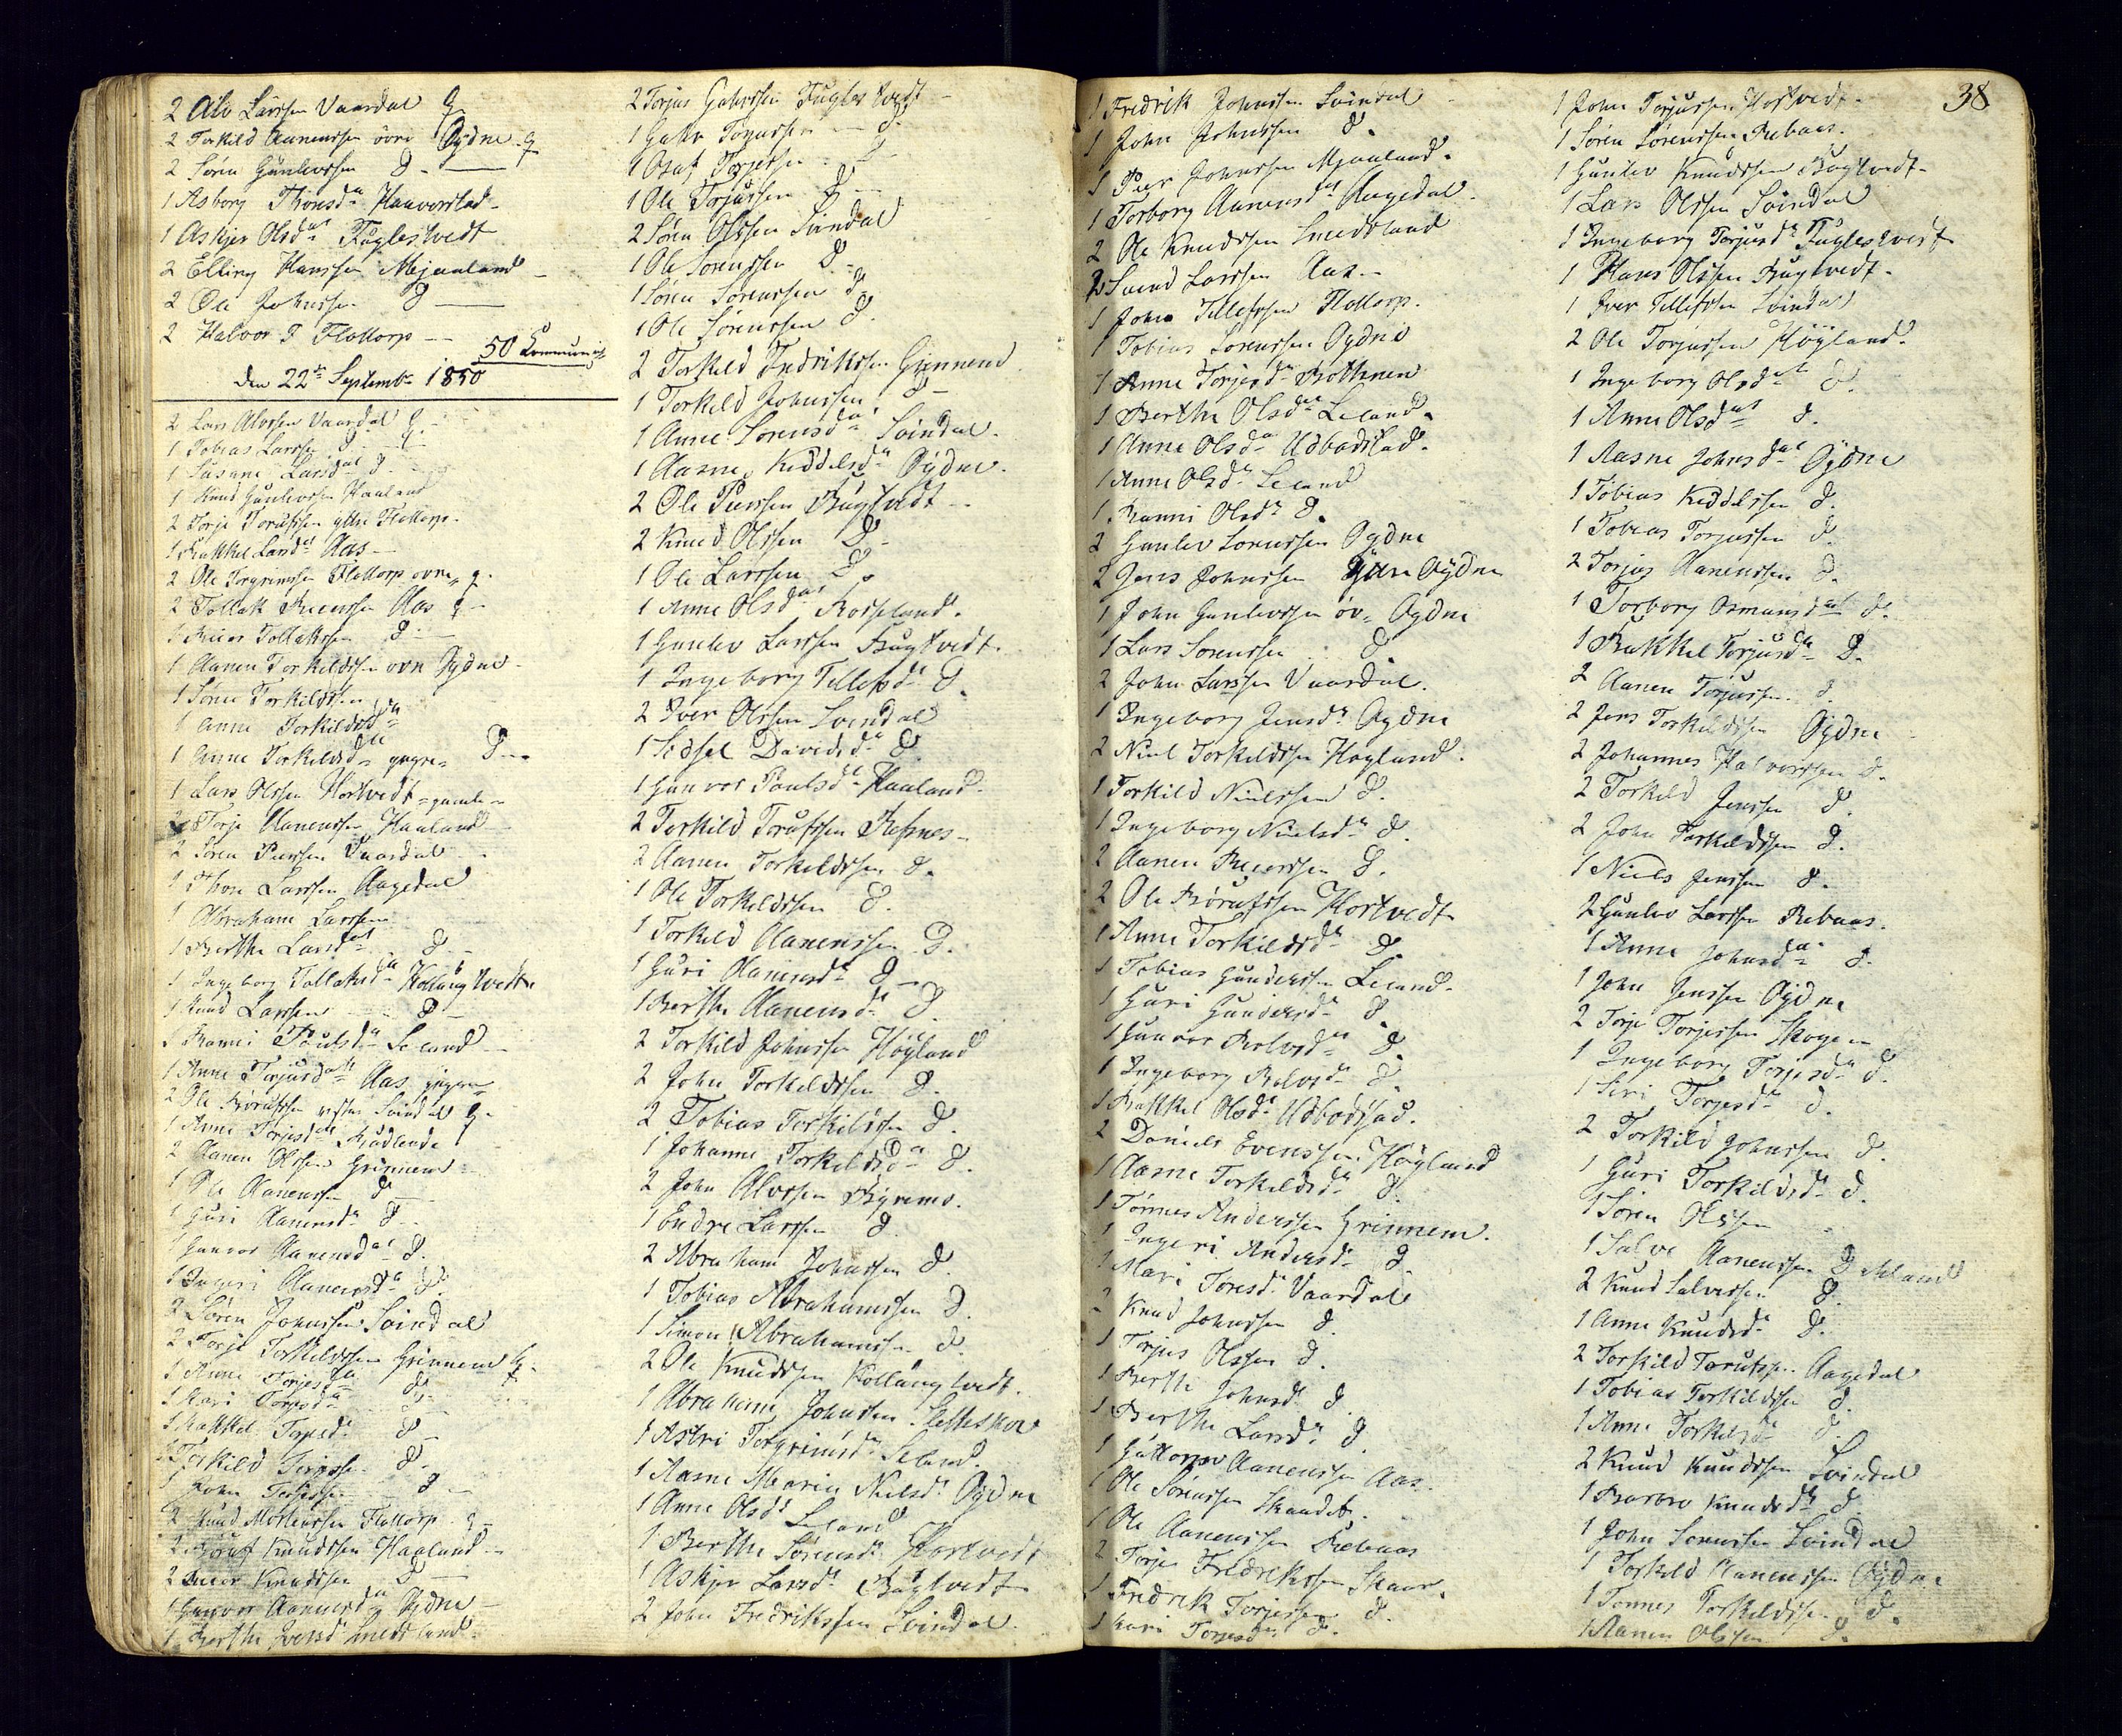 2 Alv Larssen Vaardal
2 Torkild Aanenssen övre Øydne
2 Sören Gunlevssen D
1 Asborg Thorsd. Haaverstad
1 Askjer Olsd. Fuglestvedt
2 Elling Hanssen Mjaaland
2 Ole Johnssen D
2 Halvor Flottorp
50 Communic
Den 22de Septemb. 1850
2 Lars Alvssen Vaardal
1 Tobias Larssen
1 Susane Larsd. D
1 Knud Gunlevssen Haaland
2 Torje Torufssen yttre Flottorp
1 Rakkel Larsd. Aas
2 Ole Torgrimssen Flottorp övre
2 Tollak Reierssen Aas
1 Reier Tollakssen D
1 Aanen Torkildssen övre Øydne
1 Sören Torkildssen
1 Anne Torkildsd.
1 Anne Torkildsd. yngre D
1 Lars Olssen Hortvedt gamle
2 Torje Aanenssen Haaland
2 Sören Peerssen Vaardal
1 Thore Larssen Aagedal
1 Abraham Larssen
1 Berthe Larsd. D
1 Ingeborg Tollaksd. Kollungtvedt
1 Knud Larssen D
1 Ranni Poulsd. Leland
1 Anne Torjusd. Aas yngre
2 Ole Börufssen Svindal
1 Anne Torjesd.
2 Aanen Olssen Grinnem
1 Ole Aanenssen D
1 Guri Aanensd. D
1 Gunvor Aanensd. D.
1 Ingeri Aanensd. D.
2 Sören Johnssen Svindal
2 Torje Torkildssen Grinnem
1 Anne Torjesd.
1 Mari Torjesd. D
1 Rakkel Torjesd. D
1 Torkild Torjessen D.
1 John Torjessen D
2 Knud Mortenssen Flottorp
2 Böruf Knudssen Haaland
2 Reier Knudssen D
1 Gunvor Aanensd. Øydne
1 Berthe Jensd. Smedsland
2 Torjus Gahrssen Fuglestvedt
1 Gahr Torjussen D.
1 Osuf Torjessen
1 Ole Torjussen D
2 Sören Olssen Svindal
1 Ole Sörenssen D.
1 Sören Sörenssen D.
1 Ole Sörenssen D.
2 Torkild Fredrikssen Grinnem
1 Torkild Johnssen D
1 Anne Sörensd. Svindal
1 Aasne Kiddelsd. Øydne
2 Ole Peerssen Bugtvedt
2 Knud Olssen D
1 Ole Larssen D.
1 Anne Olsd. Rosseland
1 Gunlev Larssen Bugtvedt
1 Ingeborg Tellefsd. D.
2 Iver Olssen Svindal
1 Sidsel Davidsd. D.
1 Gunvor Poulsd. Haaland
2 Torkild Torufssen Refsnes
2 Aanen Torkildssen D.
1 Ole Torkildssen D.
1 Torkild Aanenssen D.
1 Guri Aanensd. D
1 Berthe Aanensd. D
2 Torkild Johnssen Höyland
2 John Torkildssen D.
2 Tobias Torkildssen D.
1 Johanne Torkildsd. D.
2 John Alvssen Bgremo.
1 Endre Larssen D.
2 Abraham Johnssen D.
1 Tobias Abrahamssen D.
1 Simon Abrahamssen D.
2 Ole Knudssen Kollungtvedt.
1 Abraham Johnssen
1 Astri Torgrimsd. Leland
1 Aasne Marie Nielsd. Øydne
1 Anne Olsd. Leland
1 Berthe Sörensd. Hortvedt
1 Askjer Larsd. Bugtvedt
2 John Fredrikssen Svindal
1 Fredrik Johnssen Svindal
1 John Johnssen D.
1 Peer Johnssen Mjaaland.
1 Torborg Aanensd. Aagedal
2 Ole Knudssen Smedsland
2 Svend Larssen Aas
1 John Tellefssen Flottorp.
1 Tobias Sörenssen Øydne
1 Anne Torjesd. Bothnen
1 Berthe Olsd. Leland
1 Anne Olsd. Udbodstad.
1 Anne Olsd. Leland
1 Ranni Olsd. D.
2 Gunlev Sörenssen Øydne
2 Jens Johnssen Øydne
1 John Gunlevssen öv. Øydne
1 Lars Sörenssen D
2 John Larssen Vaardal.
1 Ingeborg Jensd. Øydne
2 Niel Torkildssen Höyland.
1 Torkild Nielssen D.
1 Ingeborg Nielsd. D.
2 Aanen Reierssen D.
2 Ole Börufssen Hortvedt
1 Anne Torkildsd. D.
1 Tobias Gunderssen Leland
1 Guri Gundersd. D
1 Gunvor Rolvsd. D.
1 Ingeborg Rolvsd. D.
1 Rakkel Olsd. Udbodstad.
2 Daniel Evenssen Höyland
1 Aasne Torkildsd. D.
1 Tönnes Anderssen Grinnem.
1 Ingeri Andersd. D.
1 Mari Toresd. Vaardal
2 Knud Johnssen D.
1 Torjus Olssen D.
1 Berthe Johnsd. D.
1 Berthe Larsd. D.
1 Guttorm Aanenssen Aas.
1 Ole Sörenssen Skaadet.
1 Ole Aanenssen Rebaas
2 Torje Fredrikssen Skaar.
1 Fredrik Torjessen D.
1 Kari Torjesd. D.
38
1 John Torjussen Hortvedt
1 Sören Sörenssen Rebaas.
1 Gunlev Knudssen Bugtvedt
1 Lars Olssen Svindal
1 Ingeborg Torjusd. Fuglestvedt
1 Hans Olssen Bugtvedt
1 Iver Tellefssen Svindal
2 Ole Torjussen Höyland
1 Ingeborg Olsd. D.
1 Anne Olsd. D.
1 Aasne Johnsd. Øydne
1 Tobias Kiddelssen D.
1 Tobias Torjussen D.
2 Torjus Aanenssen D.
1 Torborg Osmundsd. D.
1 Rakkel Torjusd. D.
2 Aanen Torjussen D.
2 Jens Torkildssen Øydne
2 Johannes Halvorssen D.
2 Torkild Jenssen D.
2 John Torkildssen D.
1 Niels Jenssen D.
2 Gunlev Larssen Rebaas.
1 Anne Johnsd. D.
1 John Jenssen Øydne
2 Torje Torjessen Skogen
1 Ingeborg Torjesd. D.
1 Siri Torjesd. D.
2 Torkild Johnssen D.
1 Guri Torkildsd. D.
1 Sören Olssen
1 Salve Aanenssen
2 Knud Salvessen D.
1 Anne Knudsd. D.
2 Torkild Torufssen Aagedal
1 Tobias Torkildssen D.
1 Anne Torkildsd. D.
2 Knud Knudssen Svindal
1 Barbro Knudsd. D.
1 John Sörenssen Svindal
1 Torkild Aanenssen Øydne
1 Tönnes Torkildssen D.
1 Aanen Olssen D.